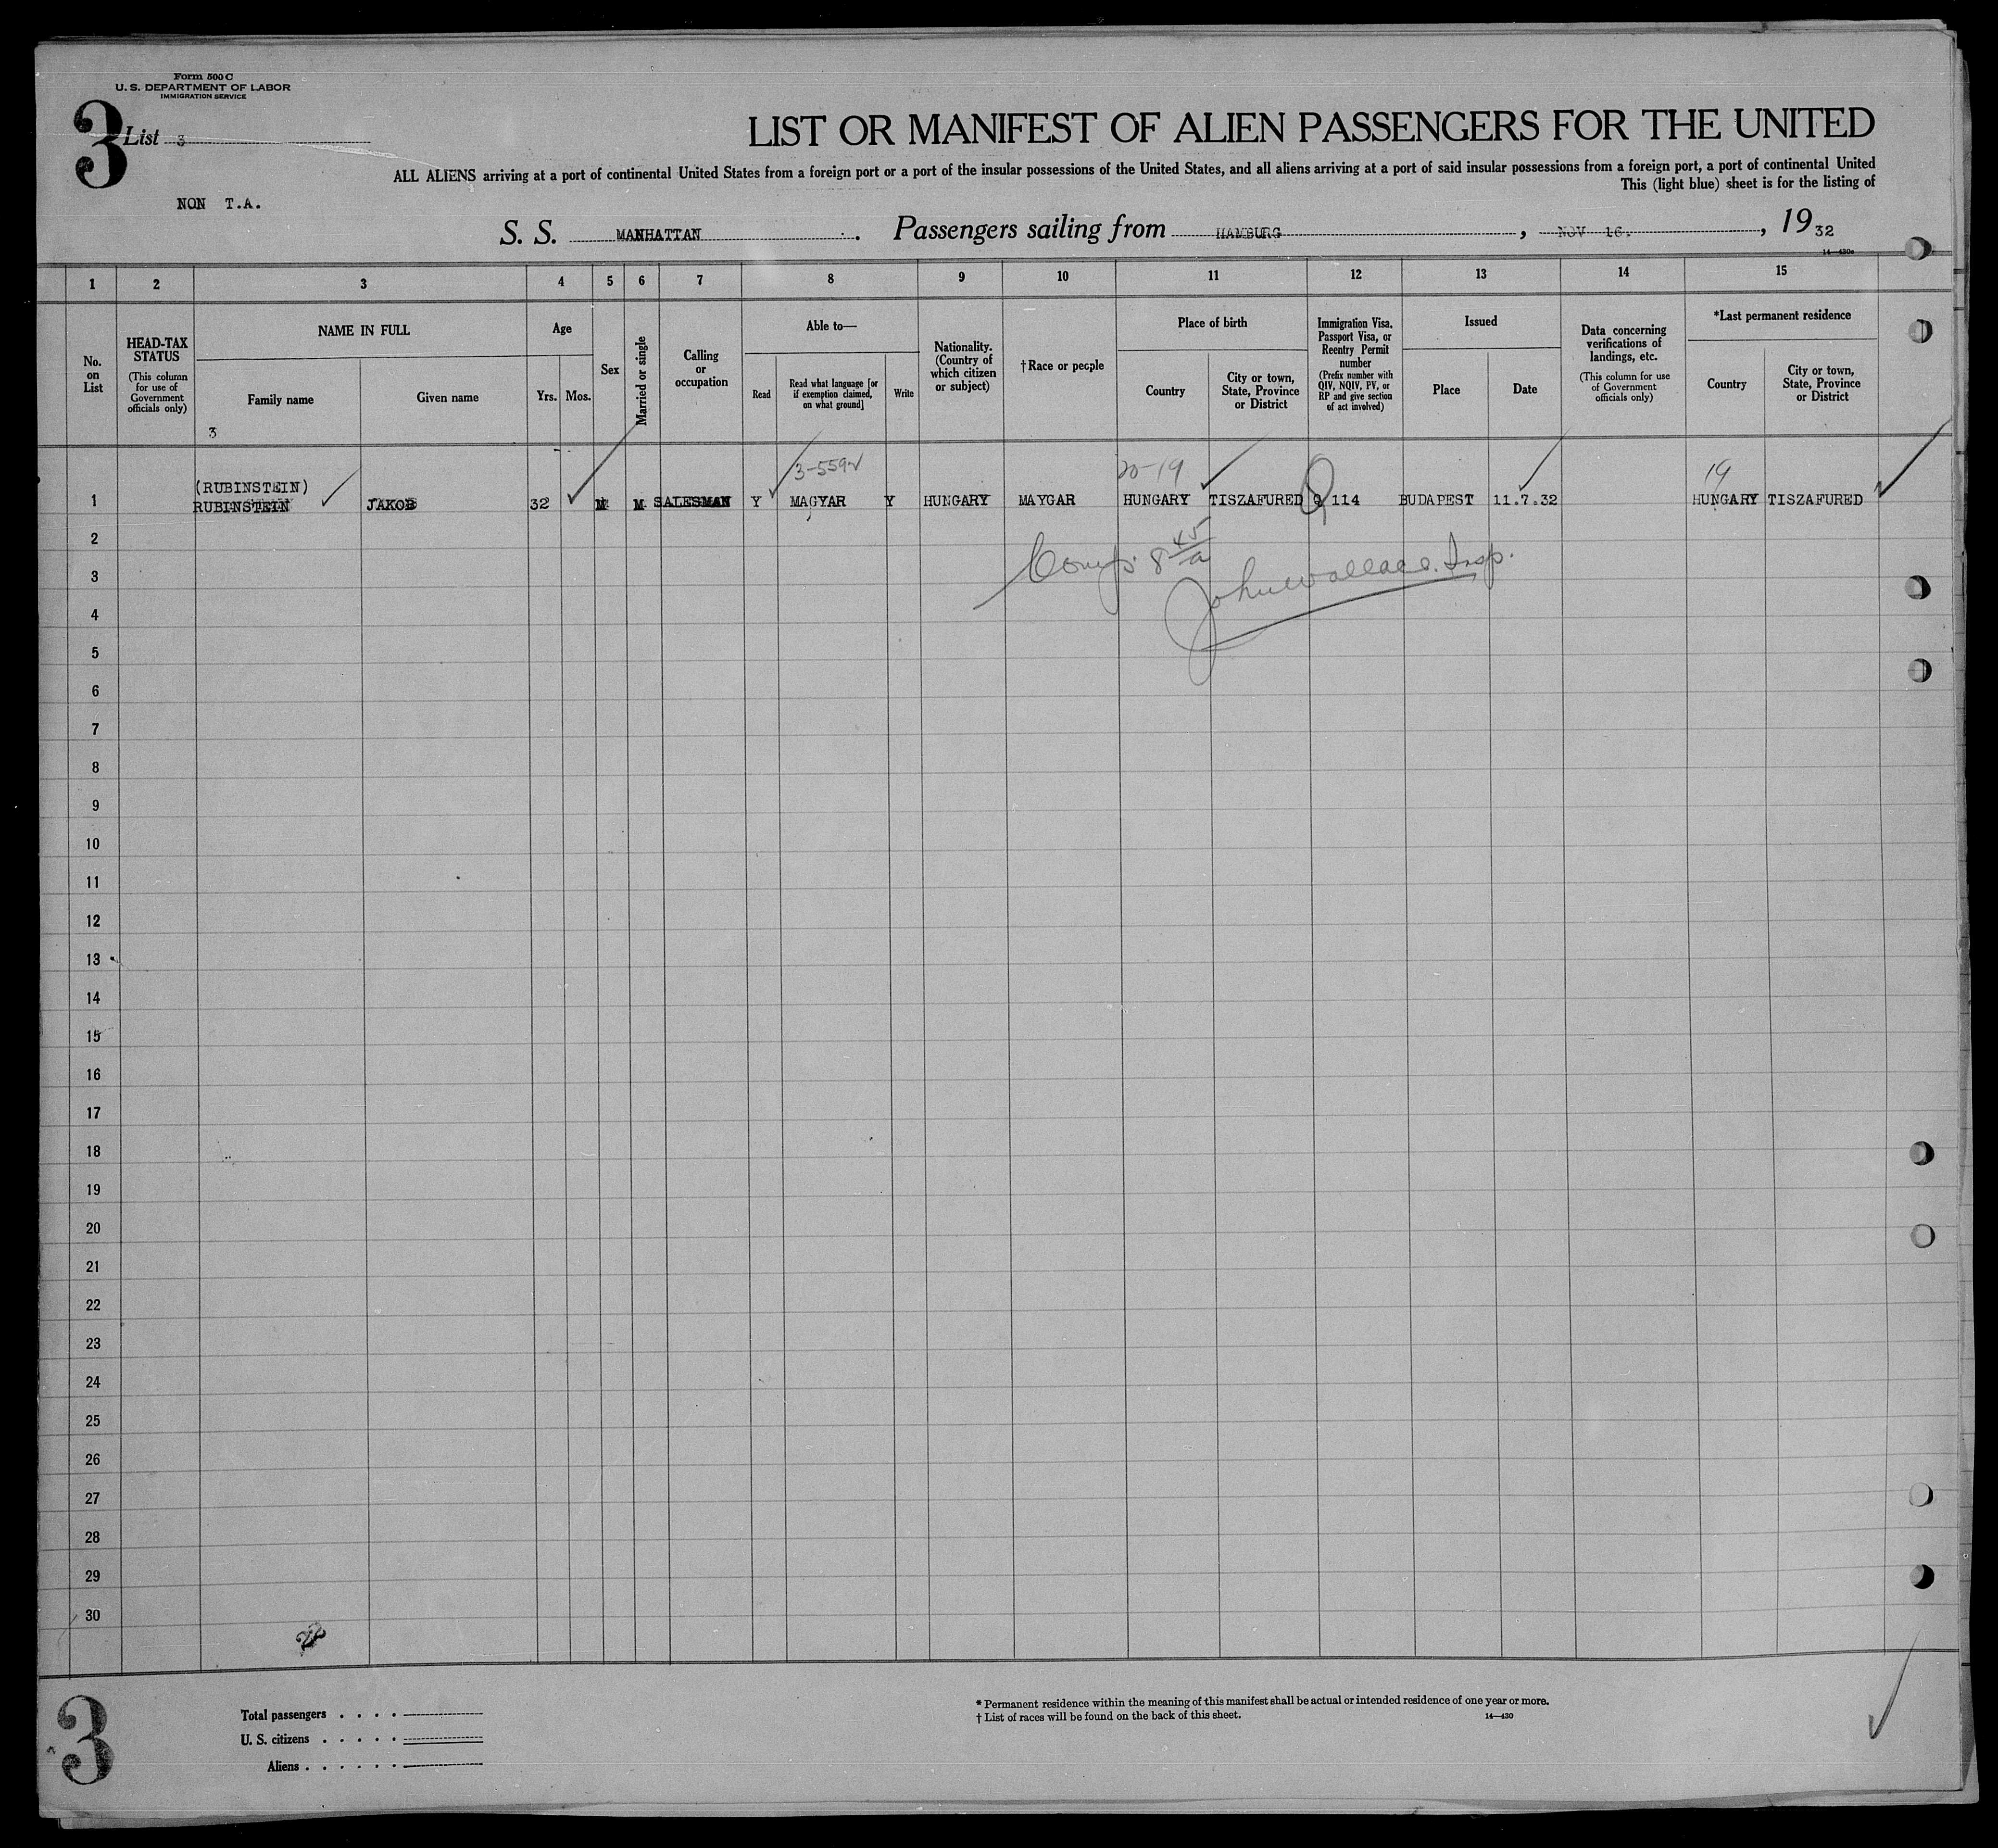 Form 500 C
U. S. DEPARTMENT OF LABOR
IMMIGRATION SERVICE
3
List 3
LIST OR MANIFEST OF ALIEN PASSENGERS FOR THE UNITED
ALL ALIENS arriving at a port of continental United States from a foreign port or a port of the insular possessions of the United States, and all aliens arriving at a port of said insular possessions from a foreign port, a port of continental United
This (light blue) sheet is for the listing of
NON T.A.
S. S. MANHATTAN. Passengers sailing from HAMBURG, NOV 16., 19 32
14—430a
1 2 3 4 5 6 7 8 9 10 11 12 13 14 15
No. on List
HEAD-TAX STATUS (This column for use of Government officials only)
NAME IN FULL
Family name
Given name
3
Age
Yrs. Mos.
Sex
Married or single
Calling or occupation
Able to—
Read
Read what language [or if exemption claimed, on what ground]
Write
Nationality. (Country of which citizen or subject)
† Race or people
Place of birth
Country
City or town, State, Province or District
Immigration Visa, Passport Visa, or Reentry Permit number (Prefix number with QIV, NQIV, PV, or RP and give section of act involved)
Issued
Place
Date
Data concerning verifications of landings, etc. (This column for use of Government officials only)
*Last permanent residence
Country
City or town, State, Province or District
3-559 20-19 19
(RUBINSTEIN)
1 RUBINSTEIN JAKOB 32 M M SALESMAN Y MAGYAR Y HUNGARY MAYGAR HUNGARY TISZAFURED Q 114 BUDAPEST 11.7.32 HUNGARY TISZAFURED
2
8 45/a
3
John Wallace. Insp.
4
5
6
7
8
9
10
11
12
13
14
15
16
17
18
19
20
21
22
23
24
25
26
27
28
29
30
3
Total passengers . . . .
U. S. citizens . . . . .
Aliens . . . . . .
* Permanent residence within the meaning of this manifest shall be actual or intended residence of one year or more.
† List of races will be found on the back of this sheet. 14—430